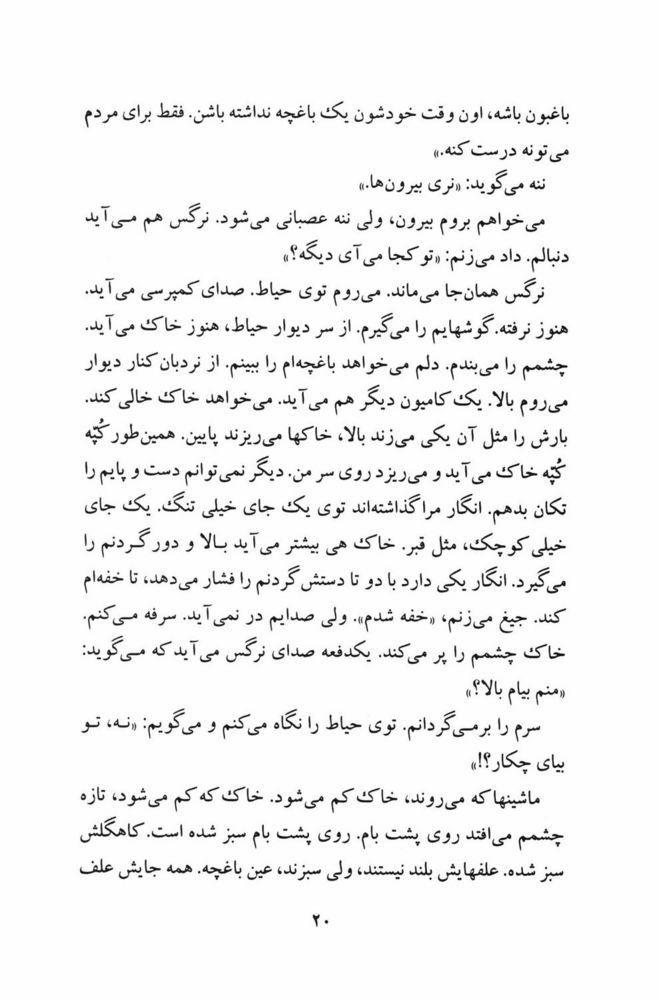 باغبون باشه، اون وقت خودشون یک باغچه نداشته باشن. فقط برای مردم
می‌تونه درست کنه.»
ننه می‌گوید: «نری بیرون‌ها.»
می‌خواهم بروم بیرون، ولی ننه عصبانی می‌شود. نرگس هم می‌آید
دنبالم. داد می‌زنم: «تو کجا می‌آی دیگه؟»
نرگس همان‌جا می‌ماند. می‌روم توی حیاط. صدای کمپرسی می‌آید.
هنوز نرفته. گوشهایم را می‌گیرم. از سر دیوار حیاط، هنوز خاک می‌آید.
چشمم را می‌بندم. دلم می‌خواهد باغچه‌ام را ببینم. از نردبان کنار دیوار
می‌روم بالا. یک کامیون دیگر هم می‌آید. می‌خواهد خاک خالی کند.
بارش را مثل آن یکی می‌زند بالا، خاکها می‌ریزند پایین. همین‌طور کُپّه
کُپّه خاک می‌آید و می‌ریزد روی سر من. دیگر نمی‌توانم دست و پایم را
تکان بدهم. انگار مرا گذاشته‌اند توی یک جای خیلی تنگ. یک جای
خیلی کوچک، مثل قبر. خاک هی بیشتر می‌آید بالا و دور گردنم را
می‌گیرد. انگار یکی دارد با دو تا دستش گردنم را فشار می‌دهد، تا خفه‌ام
کند. جیغ می‌زنم، «خفه شدم». ولی صدایم در نمی‌آید. سرفه می‌کنم.
خاک چشمم را پر می‌کند. یکدفعه صدای نرگس می‌آید که می‌گوید:
«منم بیام بالا؟»
سرم را برمی‌گردانم. توی حیاط را نگاه می‌کنم و می‌گویم: «نه، تو
بیای چکار؟!»
ماشینها که می‌روند، خاک کم می‌شود. خاک که کم می‌شود، تازه
چشمم می‌افتد روی پشت بام. روی پشت بام سبز شده است. کاهگلش
سبز شده. علفهایش بلند نیستند، ولی سبزند، عین باغچه. همه جایش علف
۲۰